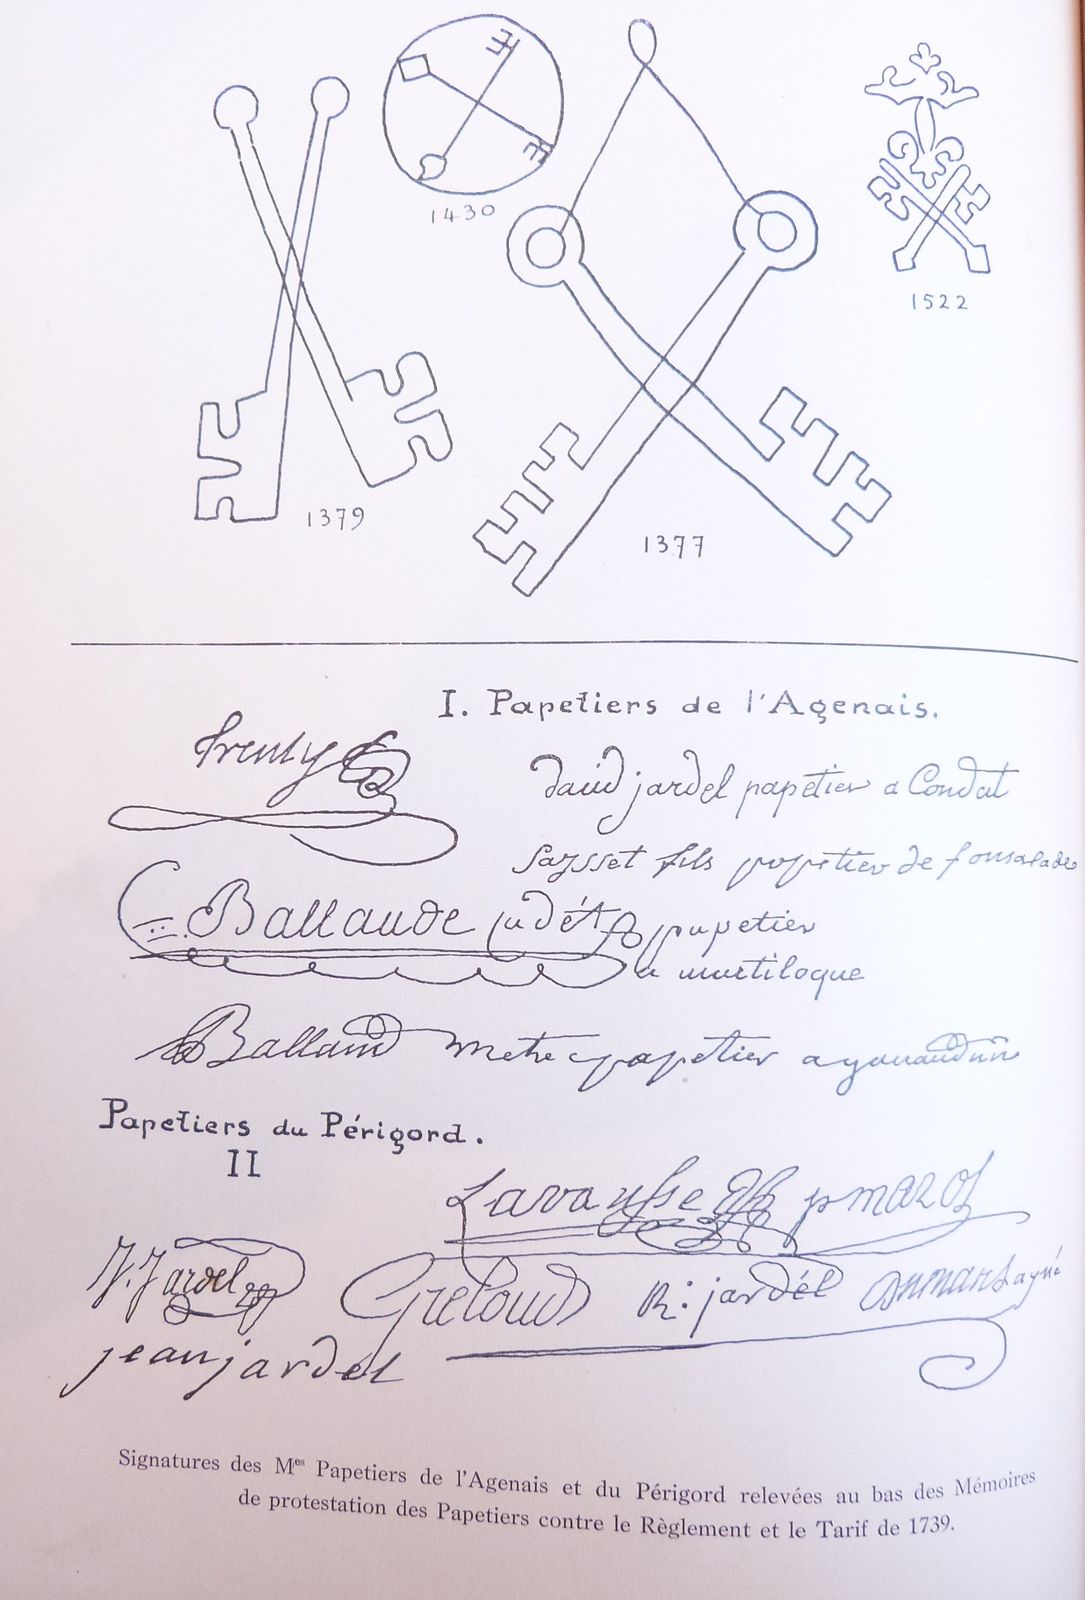 1430
1522
1379
1377
I. Papetiers de l'Agenais.
david jardel papetier a Condat
saysset fils papetier de fonsalade
Ballande cadét papetier
a martiloque
Balland metre papetier
Papetiers du Périgord.
II
Lavaysse
J. Jardel
Greloud
R: jardél
dumas ayné
jean jardel
Signatures des Mes Papetiers de l'Agenais et du Périgord relevées au bas des Mémoires
de protestation des Papetiers contre le Règlement et le Tarif de 1739.